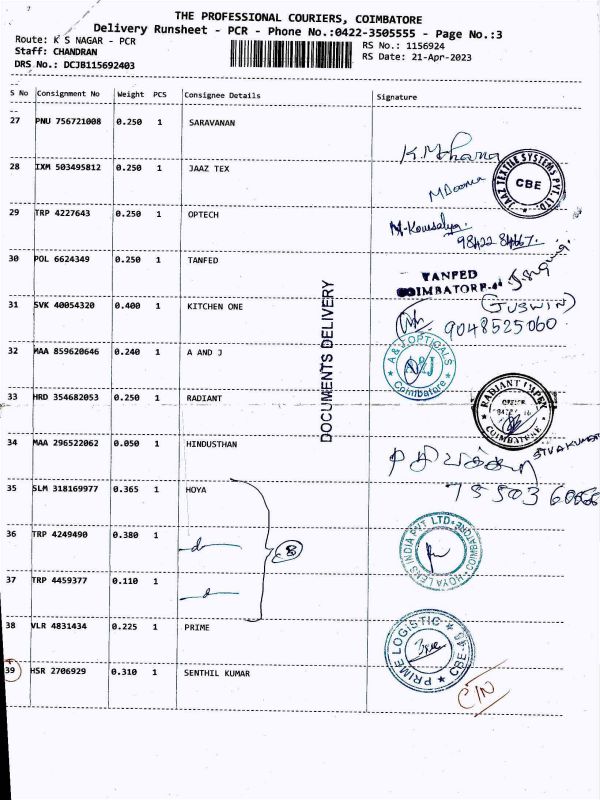 THE PROFESSIONAL COURIERS, COIMBATORE
Delivery Runsheet - PCR - Phone No.:0422-3505555 - Page No.:3
Route: K S NAGAR - PCR
Staff: CHANDRAN
DRS No.: DCJB115692403
RS No.: 1156924
RS Date: 21-Apr-2023
S No Consignment No Weight PCS Consignee Details Signature
27 PNU 756721008 0.250 1 SARAVANAN
28 IXM 503495812 0.250 1 JAAZ TEX
JAAZ TEXTILE SYSTEMS PVT. LTD.
CBE
29 TRP 4227643 0.250 1 OPTECH
M. Kousalya
30 POL 6624349 0.250 1 TANFED
TANFED
COIMBATORE
31 SVK 40054320 0.400 1 KITCHEN ONE
(JUSWIN)
9048525060
32 MAA 859620646 0.240 1 A AND J
A & J OPTICALS
A&J
Coimbatore
DOCUMENTS DELIVERY
33 HRD 354682053 0.250 1 RADIANT
RADIANT IMPEX
COIMBATORE
34 MAA 296522062 0.050 1 HINDUSTHAN
SIVAKUMAR
35 SLM 318169977 0.365 1 HOYA
36 TRP 4249490 0.380 1
HOYA LENS INDIA PVT LTD
37 TRP 4459377 0.110 1
38 VLR 4831434 0.225 1 PRIME
PRIME LOGISTIC
CBE-45
39 HSR 2706929 0.310 1 SENTHIL KUMAR
C/N